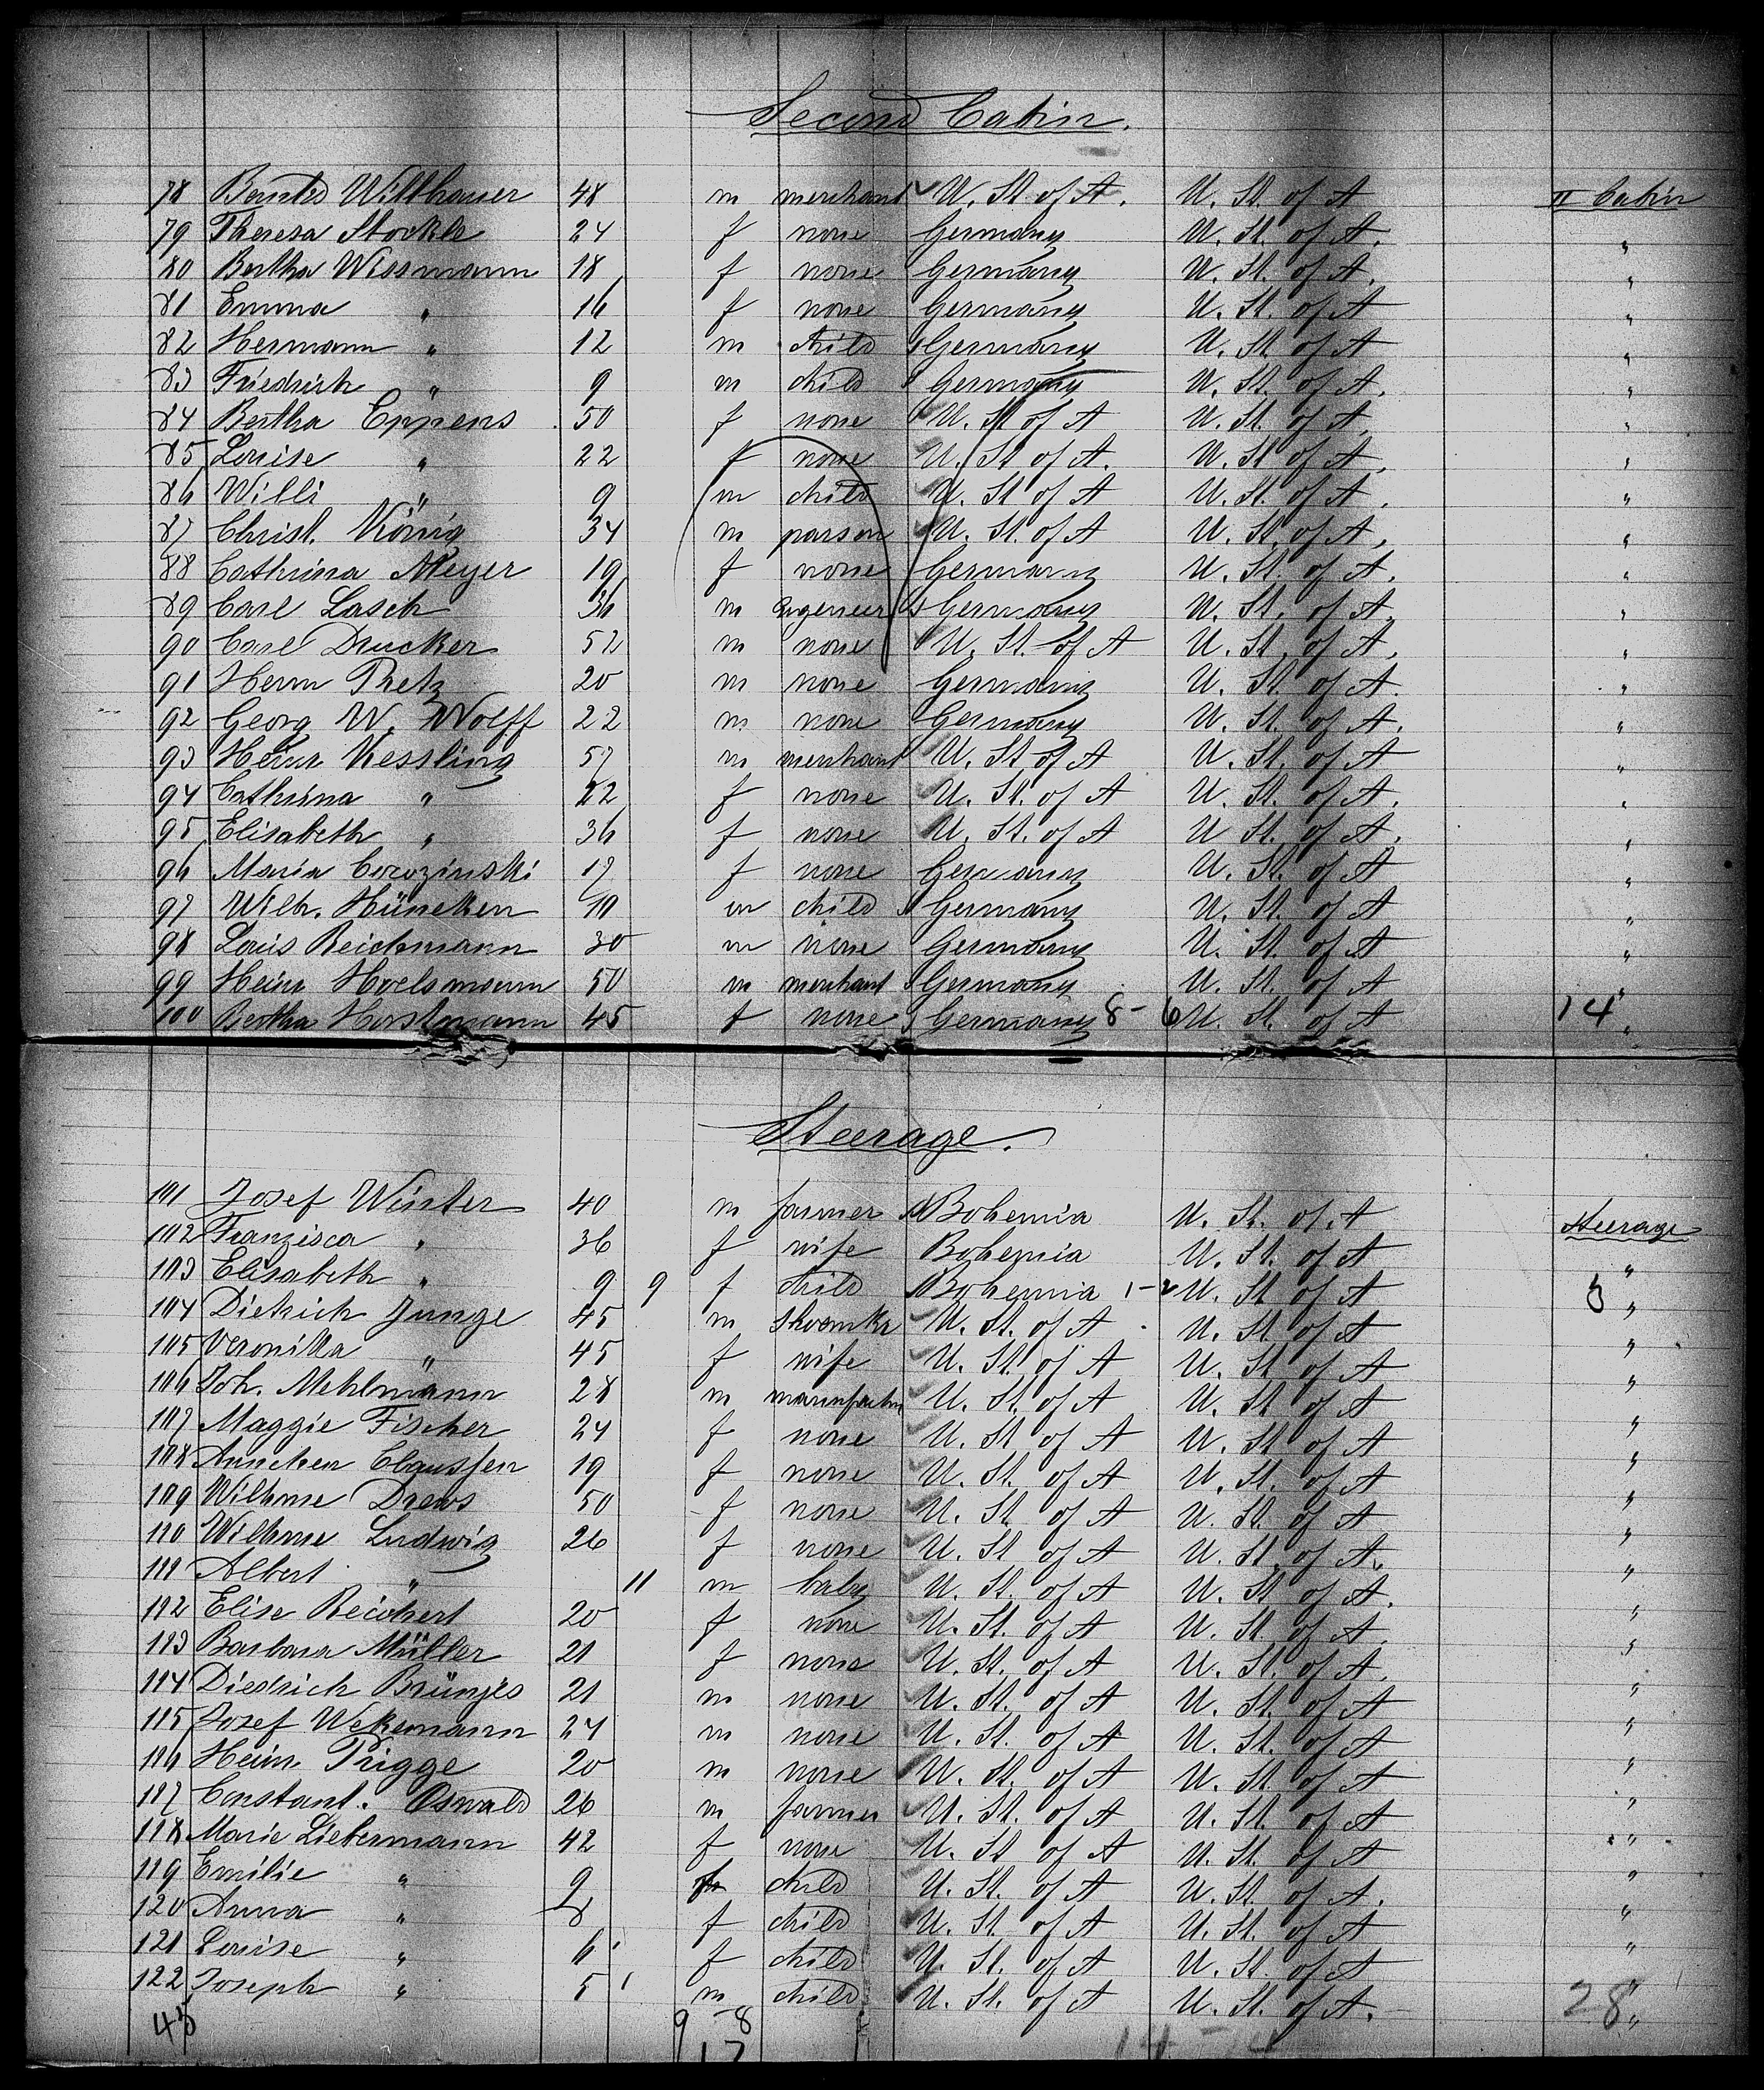 Second Cabin.
78 Willhauer 48 m merchant U. St. of A. U. St. of A II Cabin
79 Theresa Stockle 24 f none Germany U. St. of A. "
80 Bertha Wissmann 18 f none Germany U. St. of A. "
81 Emma " 16 f none Germany U. St. of A "
82 Hermann " 12 m child Germany U. St. of A "
83 Friedrich " 9 m child Germany U. St. of A. "
84 Bertha Eppens 50 f none U. St. of A U. St. of A. "
85 Louise " 22 f none U. St. of A. U. St. of A. "
86 Willi " 9 m child U. St. of A U. St. of A. "
87 Christ. König 34 m parson U. St. of A U. St. of A. "
88 Cathrina Meyer 19 f none Germany U. St. of A. "
89 Carl Lasch 36 m Germany U. St. of A. "
90 Carl Drucker 52 m none U. St. of A U. St. of A. "
91 Herm Pretz 20 m none Germany U. St. of A. "
92 Georg W. Wolff 22 m none Germany U. St. of A. "
93 Heinr Kessling 57 m merchant U. St. of A U. St. of A "
94 Cathrina " 22 f none U. St. of A U. St. of A. "
95 Elisabeth " 36 f none U. St. of A U. St. of A. "
96 Maria 17 f none Germany U. St. of A "
97 Wilh. Hüneken 10 m child Germany U. St. of A "
98 Louis Reichmann 30 m none Germany U. St. of A "
99 Heinr Hoelsmann 50 m merchant Germany U. St. of A "
100 Bertha Horstmann 45 f none Germany 8-6 U. St. of A 14 "
Steerage.
101 Josef Winter 40 m farmer Bohemia U. St. of A Steerage
102 Franzisca " 36 f wife Bohemia U. St. of A "
103 Elisabeth " 9 9 f child Bohemia 1-2 U. St. of A 3 "
104 Dietrich Junge 45 m shoemkr U. St. of A U. St. of A "
105 Veronika " 45 f wife U. St. of A U. St. of A "
106 Joh. Mehlmann 28 m U. St. of A U. St. of A "
107 Maggie Fischer 24 f none U. St. of A U. St. of A "
108 Annchen Claussen 19 f none U. St. of A U. St. of A "
109 Wilhme Drews 50 f none U. St. of A U. St. of A "
110 Wilhme Ludwig 26 f none U. St. of A U. St. of A. "
111 Albert " 11 m baby U. St. of A U. St. of A. "
112 Elise Reichert 20 f none U. St. of A U. St. of A. "
113 Barbara Müller 21 f none U. St. of A U. St. of A. "
114 Diedrich Brünjes 21 m none U. St. of A U. St. of A "
115 Josef Wekemann 24 m none U. St. of A U. St. of A "
116 Heinr. Prigge 20 m none U. St. of A U. St. of A "
117 Constant. Oswald 26 m farmer U. St. of A U. St. of A "
118 Marie Liebermann 42 f none U. St. of A U. St. of A "
119 Emilie " 9 f child U. St. of A U. St. of A. "
120 Anna " 8 f child U. St. of A U. St. of A "
121 Louise " 6 f child U. St. of A U. St. of A "
122 Joseph " 5 m child U. St. of A U. St. of A. "
45 9-8 28 "
17 14-14